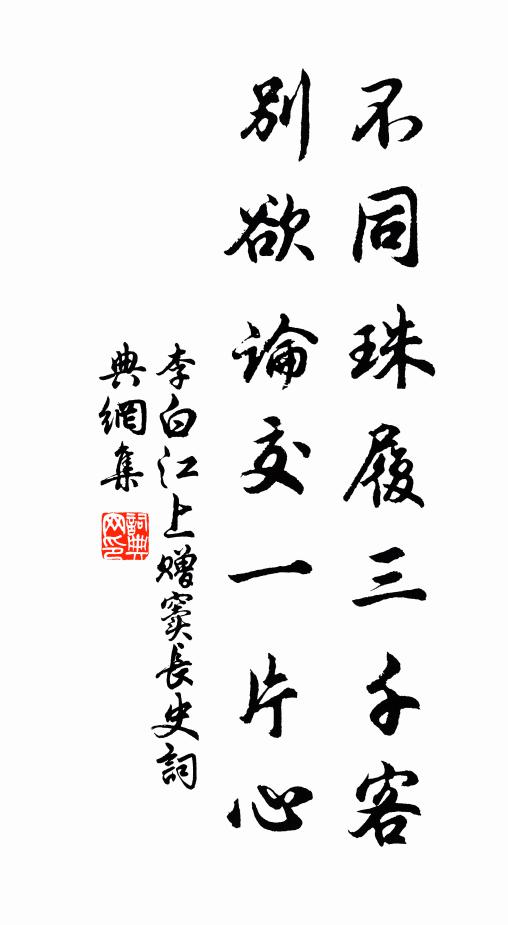 不同珠履三千客
別欲論交一片心
李白江上贈竇長史詞
典網集
詞典網印